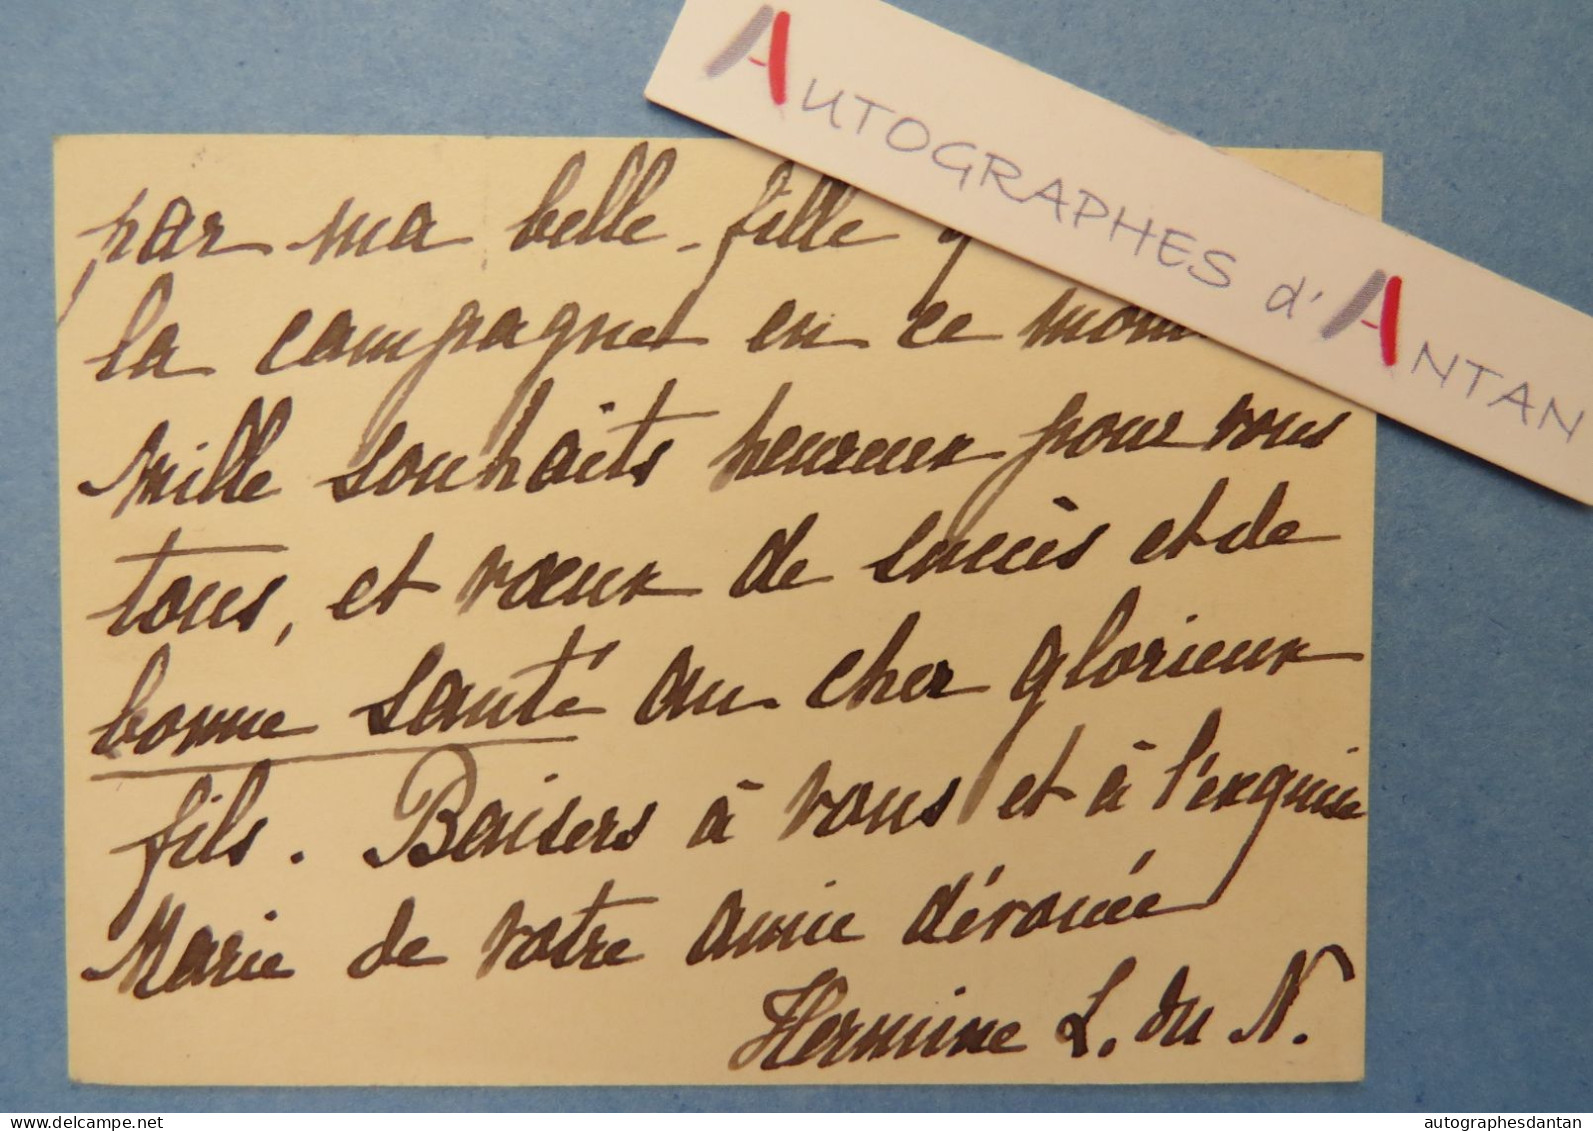 AUTOGRAPHES d'ANTAN
par ma belle-fille
la campagne en ce
Mille souhaits heureux pour vous
tous, et vœux de succès et de
bonne santé au cher glorieux
fils. Baisers à vous et à l'exquise
Marie de votre amie dévouée
Hermine L. du N.
www.delcampe.net
autographesdantan